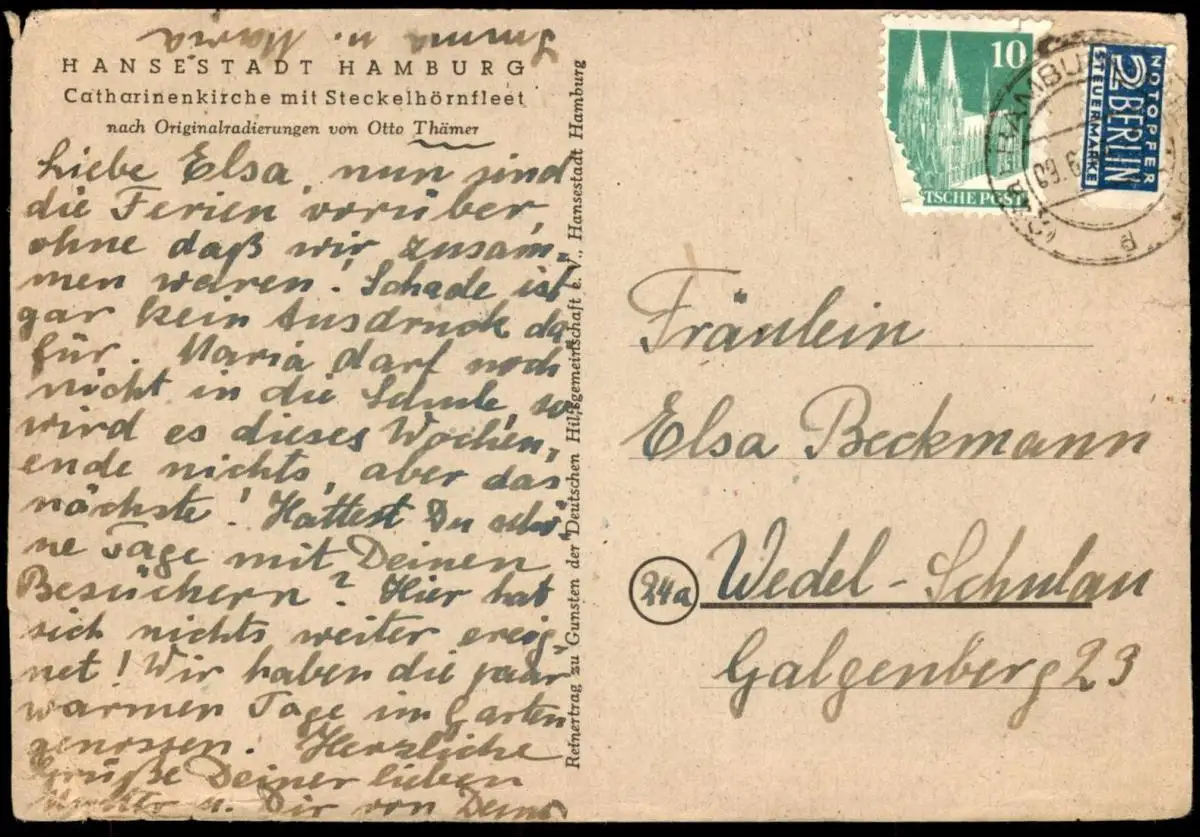 Imma u. Maria
HANSESTADT HAMBURG
Catharinenkirche mit Steckelhörnfleet
nach Originalradierungen von Otto Thämer
Liebe Elsa, nun sind
die Ferien vorüber,
ohne daß wir zusam-
men waren! Schade ist
gar kein Ausdruck da
für. Maria darf noch
nicht in die Schule, so
wird es dieses Wochen,
ende nichts, aber das
nächste! Hattest Du schö-
ne Tage mit Deinen
Besüchern? Hier hat
sich nichts weiter ereig-
net! Wir haben die paar
warmen Tage im Garten
genossen. Herzliche
Grüße Deiner lieben
Mutter u. Dir von Deiner
Reinertrag zu Gunsten der Deutschen Hilfsgemeinschaft e. V., Hansestadt Hamburg
10
TSCHE POST
HAMBU
NOTOPFER
2 BERLIN
STEUERMARKE
Fräulein
Elsa Beckmann
24a Wedel-Schulau
Galgenberg 23